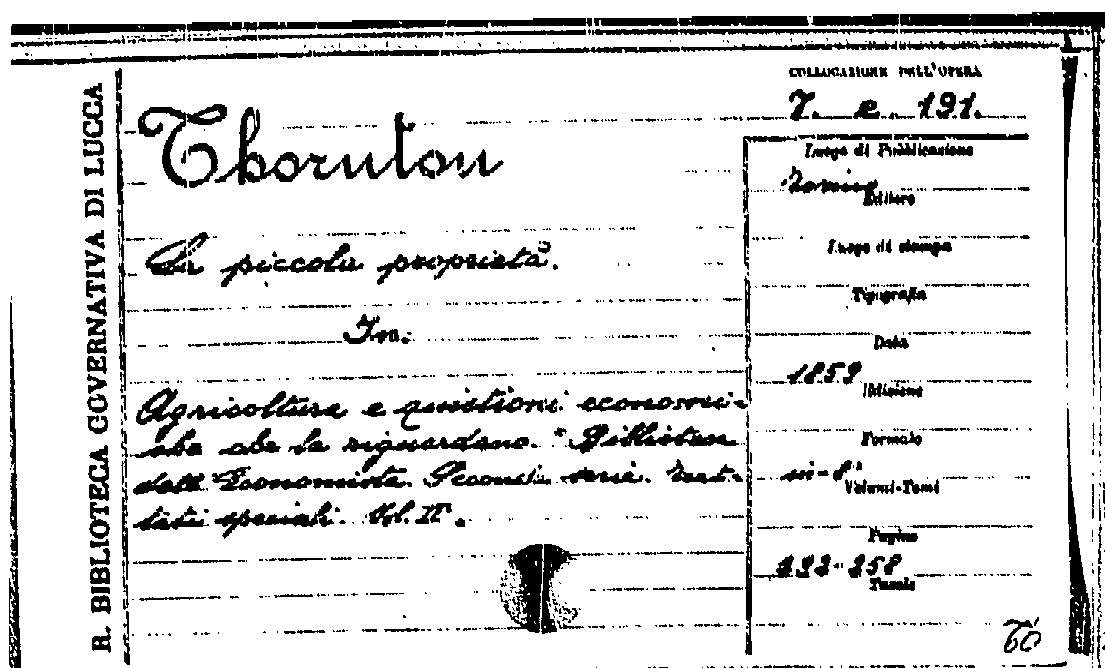 R. BIBLIOTECA GOVERNATIVA DI LUCCA
COLLOCAZIONE DELL'OPERA
7. e. 191.
Thornton
La piccola proprietà.
In:
Agricoltura e quistioni economi-
che che la riguardano. "Biblioteca
dell'Economista. Seconda serie. Trat-
tati speciali. Vol. II.
Luogo di Pubblicazione
Torino
Editore
Luogo di stampa
Tipografia
Data
1859
Edizione
Formato
in-8°
Volumi-Tomi
Pagine
Tavole